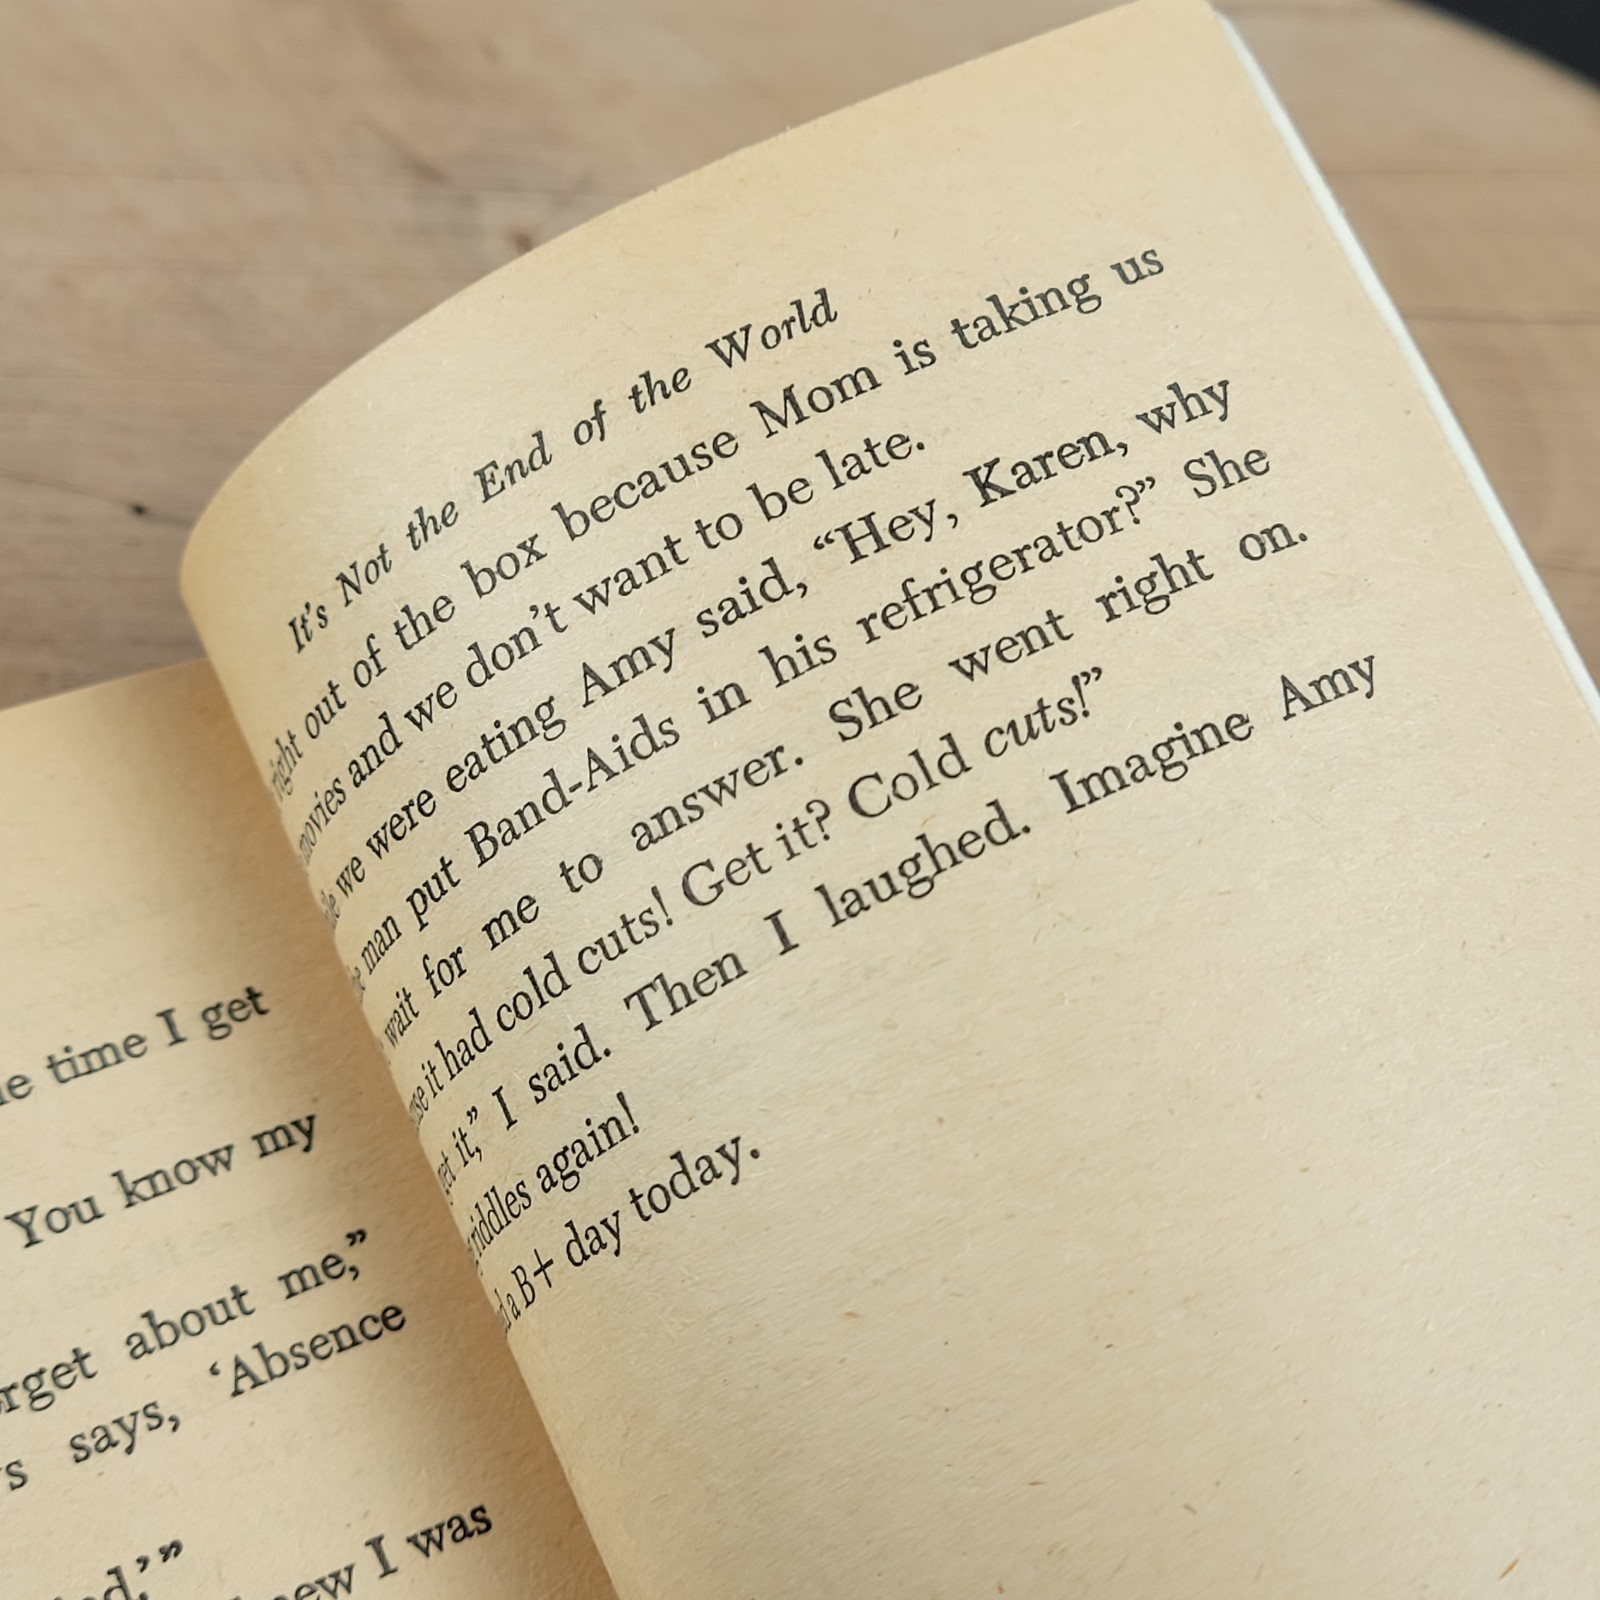 time I get
You know my
about me,”
says, ‘Absence
I was
It’s Not the End of the World
right out of the box because Mom is taking us
movies and we don’t want to be late.
we were eating Amy said, “Hey, Karen, why
man put Band-Aids in his refrigerator?” She
wait for me to answer. She went right on.
it had cold cuts! Get it? Cold cuts!”
it,” I said. Then I laughed. Imagine Amy
riddles again!
a B+ day today.